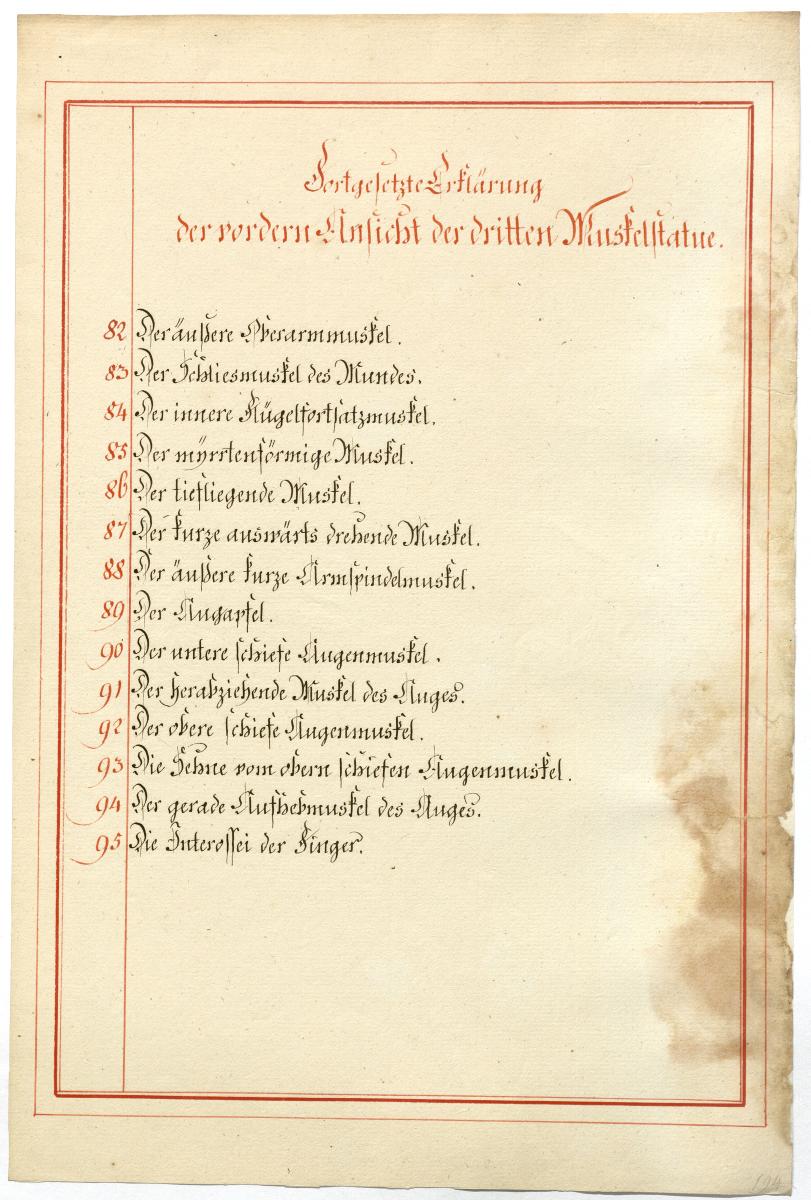 Fortgesetzte Erklärung
der vordern Ansicht der dritten Muskelstatue.
82 Der äußere Oberarmmuskel.
83 Der Schliesmuskel des Mundes.
84 Der innere Flügelfortsatzmuskel.
85 Der myrrtenförmige Muskel.
86 Der tiefliegende Muskel.
87 Der kurze auswärts drehende Muskel.
88 Der äußere kurze Armspindelmuskel.
89 Der Augapfel.
90 Der untere schiefe Augenmuskel.
91 Der herabziehende Muskel des Auges.
92 Der obere schiefe Augenmuskel.
93 Die Sehne vom obern schiefen Augenmuskel.
94 Der gerade Aufhebmuskel des Auges.
95 Die Interossei der Finger.
194